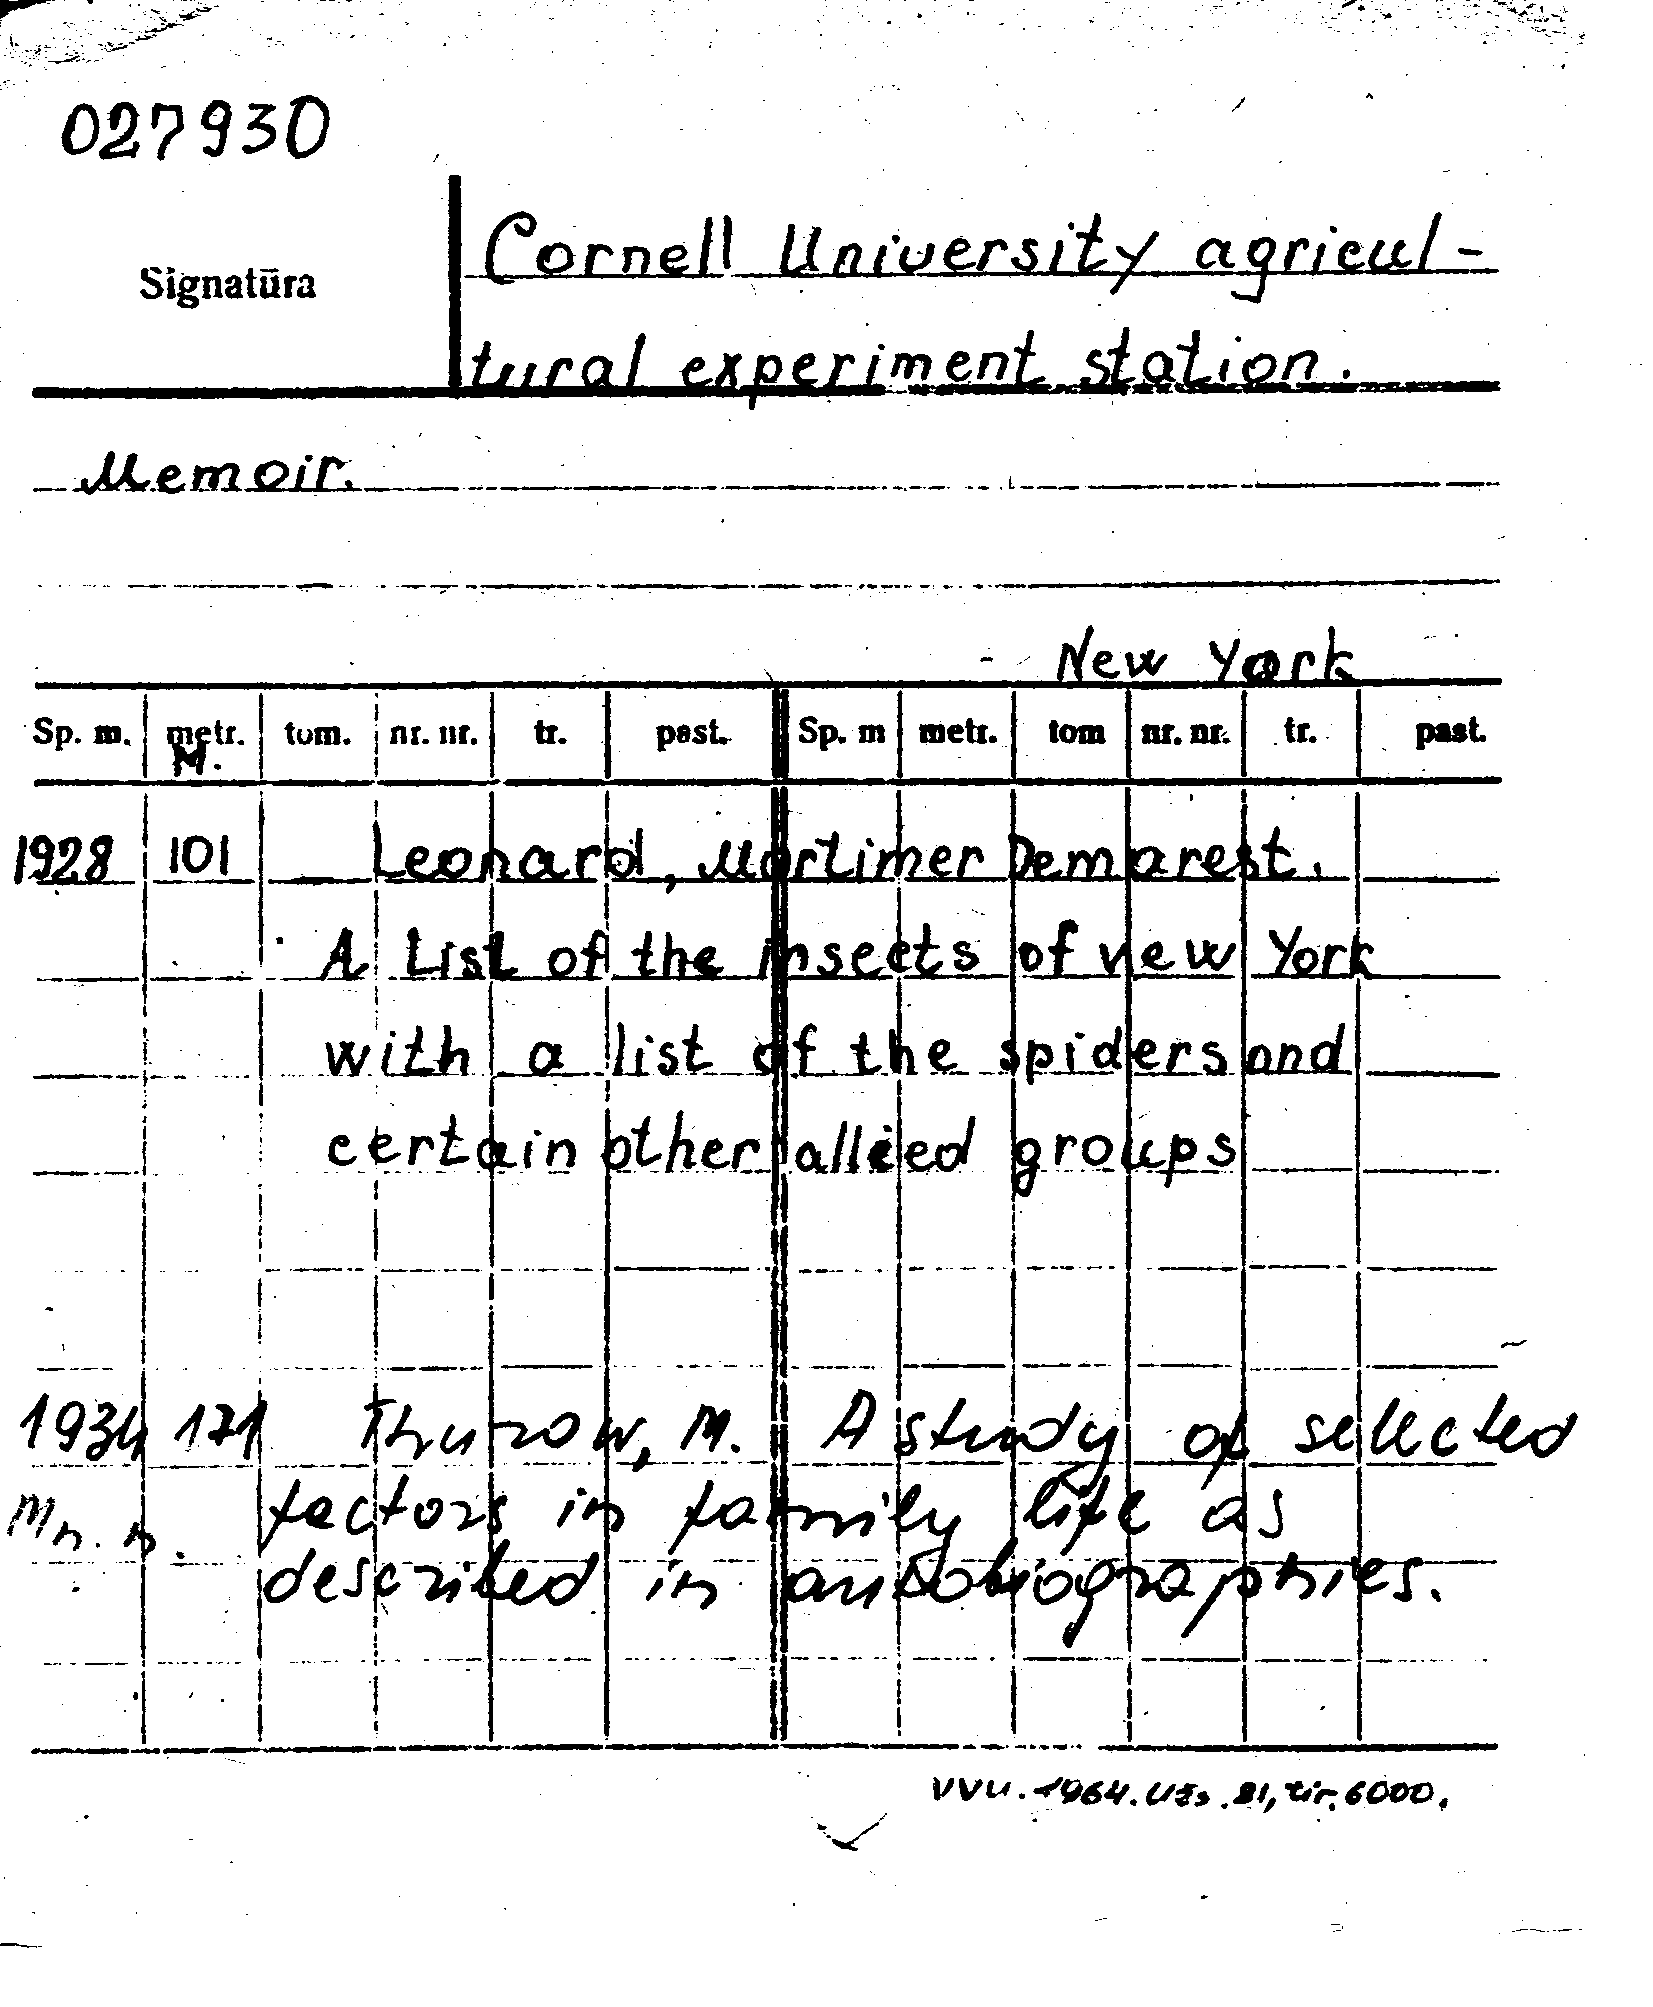 027930
Signatūra
Cornell University agricul-
tural experiment station.
Memoir.
New York
Sp. m. metr. tom. nr. nr. tr. past. Sp. m metr. tom nr. nr. tr. past.
M.
1928 101 Leonard, Mortimer Demarest.
A List of the insects of new York
with a list of the spiders and
certain other allied groups
1934 171 Thurow, M. A study of selected
Mn. n. factors in family life as
described in autobiographies.
VVU. 1964. Užs. 81, tir. 6000.